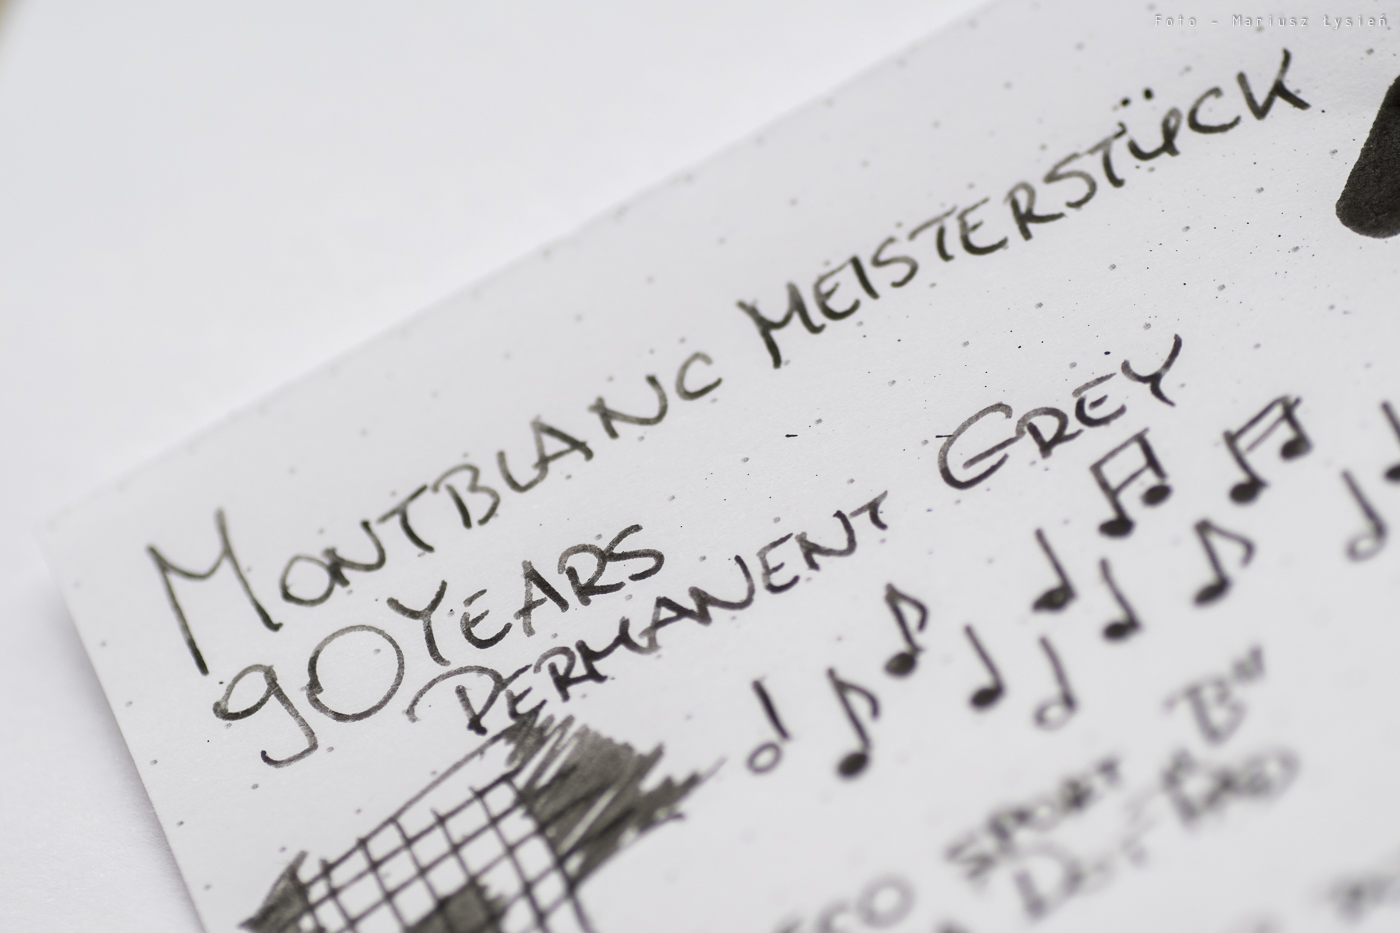 Foto - Mariusz Łysień
MONTBLANC MEISTERSTÜCK
90 YEARS
PERMANENT GREY
SPORT "B"